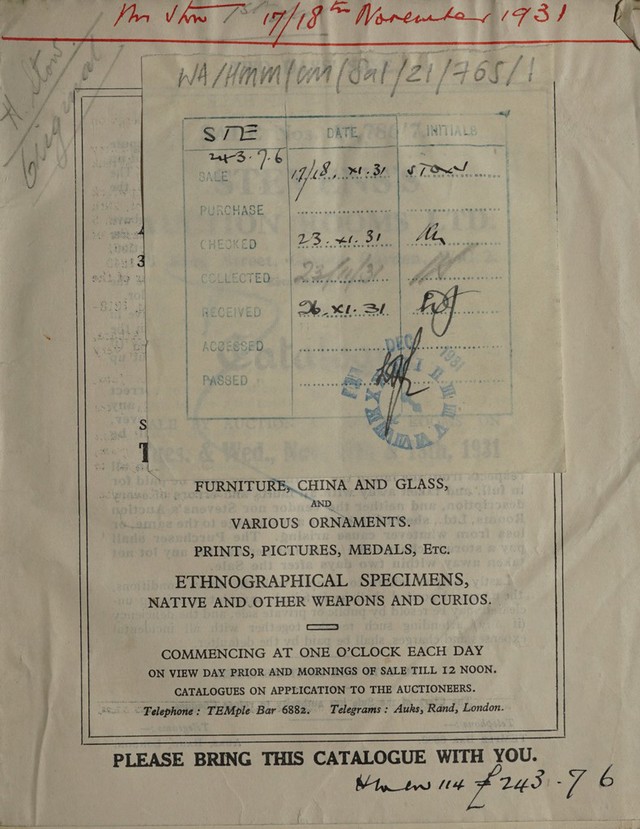 Mr Stow 17/18th November 1931
H. Stow.
Original
WA/HMM/CM/Sal/21/765/1
STE DATE INITIALS
243.7.6
SALE 17/18.XI.31 STOW
PURCHASE
CHECKED 23.XI.31
COLLECTED 23/11/31
RECEIVED 26.XI.31
ACCESSED
PASSED
DEC 1931
FURNITURE, CHINA AND GLASS,
AND
VARIOUS ORNAMENTS.
PRINTS, PICTURES, MEDALS, Etc.
ETHNOGRAPHICAL SPECIMENS,
NATIVE AND OTHER WEAPONS AND CURIOS.
COMMENCING AT ONE O'CLOCK EACH DAY
ON VIEW DAY PRIOR AND MORNINGS OF SALE TILL 12 NOON.
CATALOGUES ON APPLICATION TO THE AUCTIONEERS.
Telephone: TEMple Bar 6882. Telegrams: Auks, Rand, London.
PLEASE BRING THIS CATALOGUE WITH YOU.
114 £243.7 6